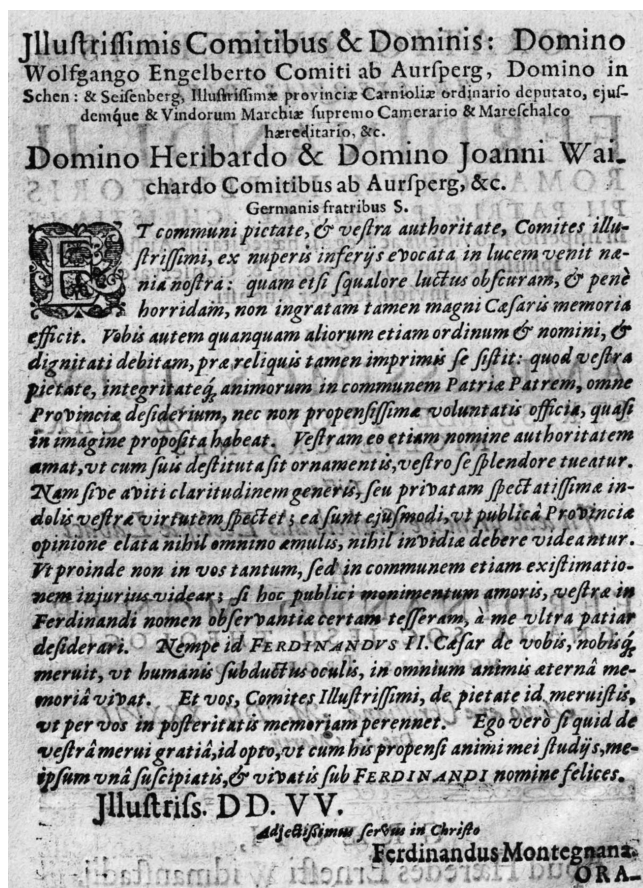 Jllustrissimis Comitibus & Dominis: Domino
Wolfgango Engelberto Comiti ab Aursperg, Domino in
Schen: & Seisenberg, Illustrissimæ provinciæ Carnioliæ ordinario deputato, ejus-
demque & Vindorum Marchiæ supremo Camerario & Mareschalco
hæreditario, &c.
Domino Heribardo & Domino Joanni Wai-
chardo Comitibus ab Aursperg, &c.
Germanis fratribus S.
ET communi pietate, & vestra authoritate, Comites illu-
strissimi, ex nuperis inferijs evocata in lucem venit næ-
nia nostra: quam etsi squalore luctus obscuram, & penè
horridam, non ingratam tamen magni Cæsaris memoria
efficit. Vobis autem quanquam aliorum etiam ordinum & nomini, &
dignitati debitam, præ reliquis tamen imprimis se sistit: quod vestra
pietate, integritateq́; animorum in communem Patriæ Patrem, omne
Provinciæ desiderium, nec non propensissimæ voluntatis officia, quasi
in imagine proposita habeat. Vestram eo etiam nomine authoritatem
amat, vt cum suis destituta sit ornamentis, vestro se splendore tueatur.
Nam sive aviti claritudinem generis, seu privatam spectatissimæ in-
dolis vestræ virtutem spectet; ea sunt ejusmodi, vt publicâ Provinciæ
opinione elata nihil omnino æmulis, nihil invidiæ debere videantur.
Vt proinde non in vos tantum, sed in communem etiam existimatio-
nem injurius videar; si hoc publici monimentum amoris, vestræ in
Ferdinandi nomen observantiæ certam tesseram, à me vltra patiar
desiderari. Nempe id FERDINANDVS II. Cæsar de vobis, nobisq́;
meruit, vt humanis subductus oculis, in omnium animis æternâ me-
moriâ vivat. Et vos, Comites Illustrissimi, de pietate id meruistis,
vt per vos in posteritatis memoriam perennet. Ego verò si quid de
vestrâ merui gratiâ, id opto, vt cum his propensi animi mei studijs, me-
ipsum vnâ suscipiatis, & vivatis sub FERDINANDI nomine felices.
Jllustriss. DD. VV.
Adjectissimus servus in Christo
Ferdinandus Montegnana.
ORA-